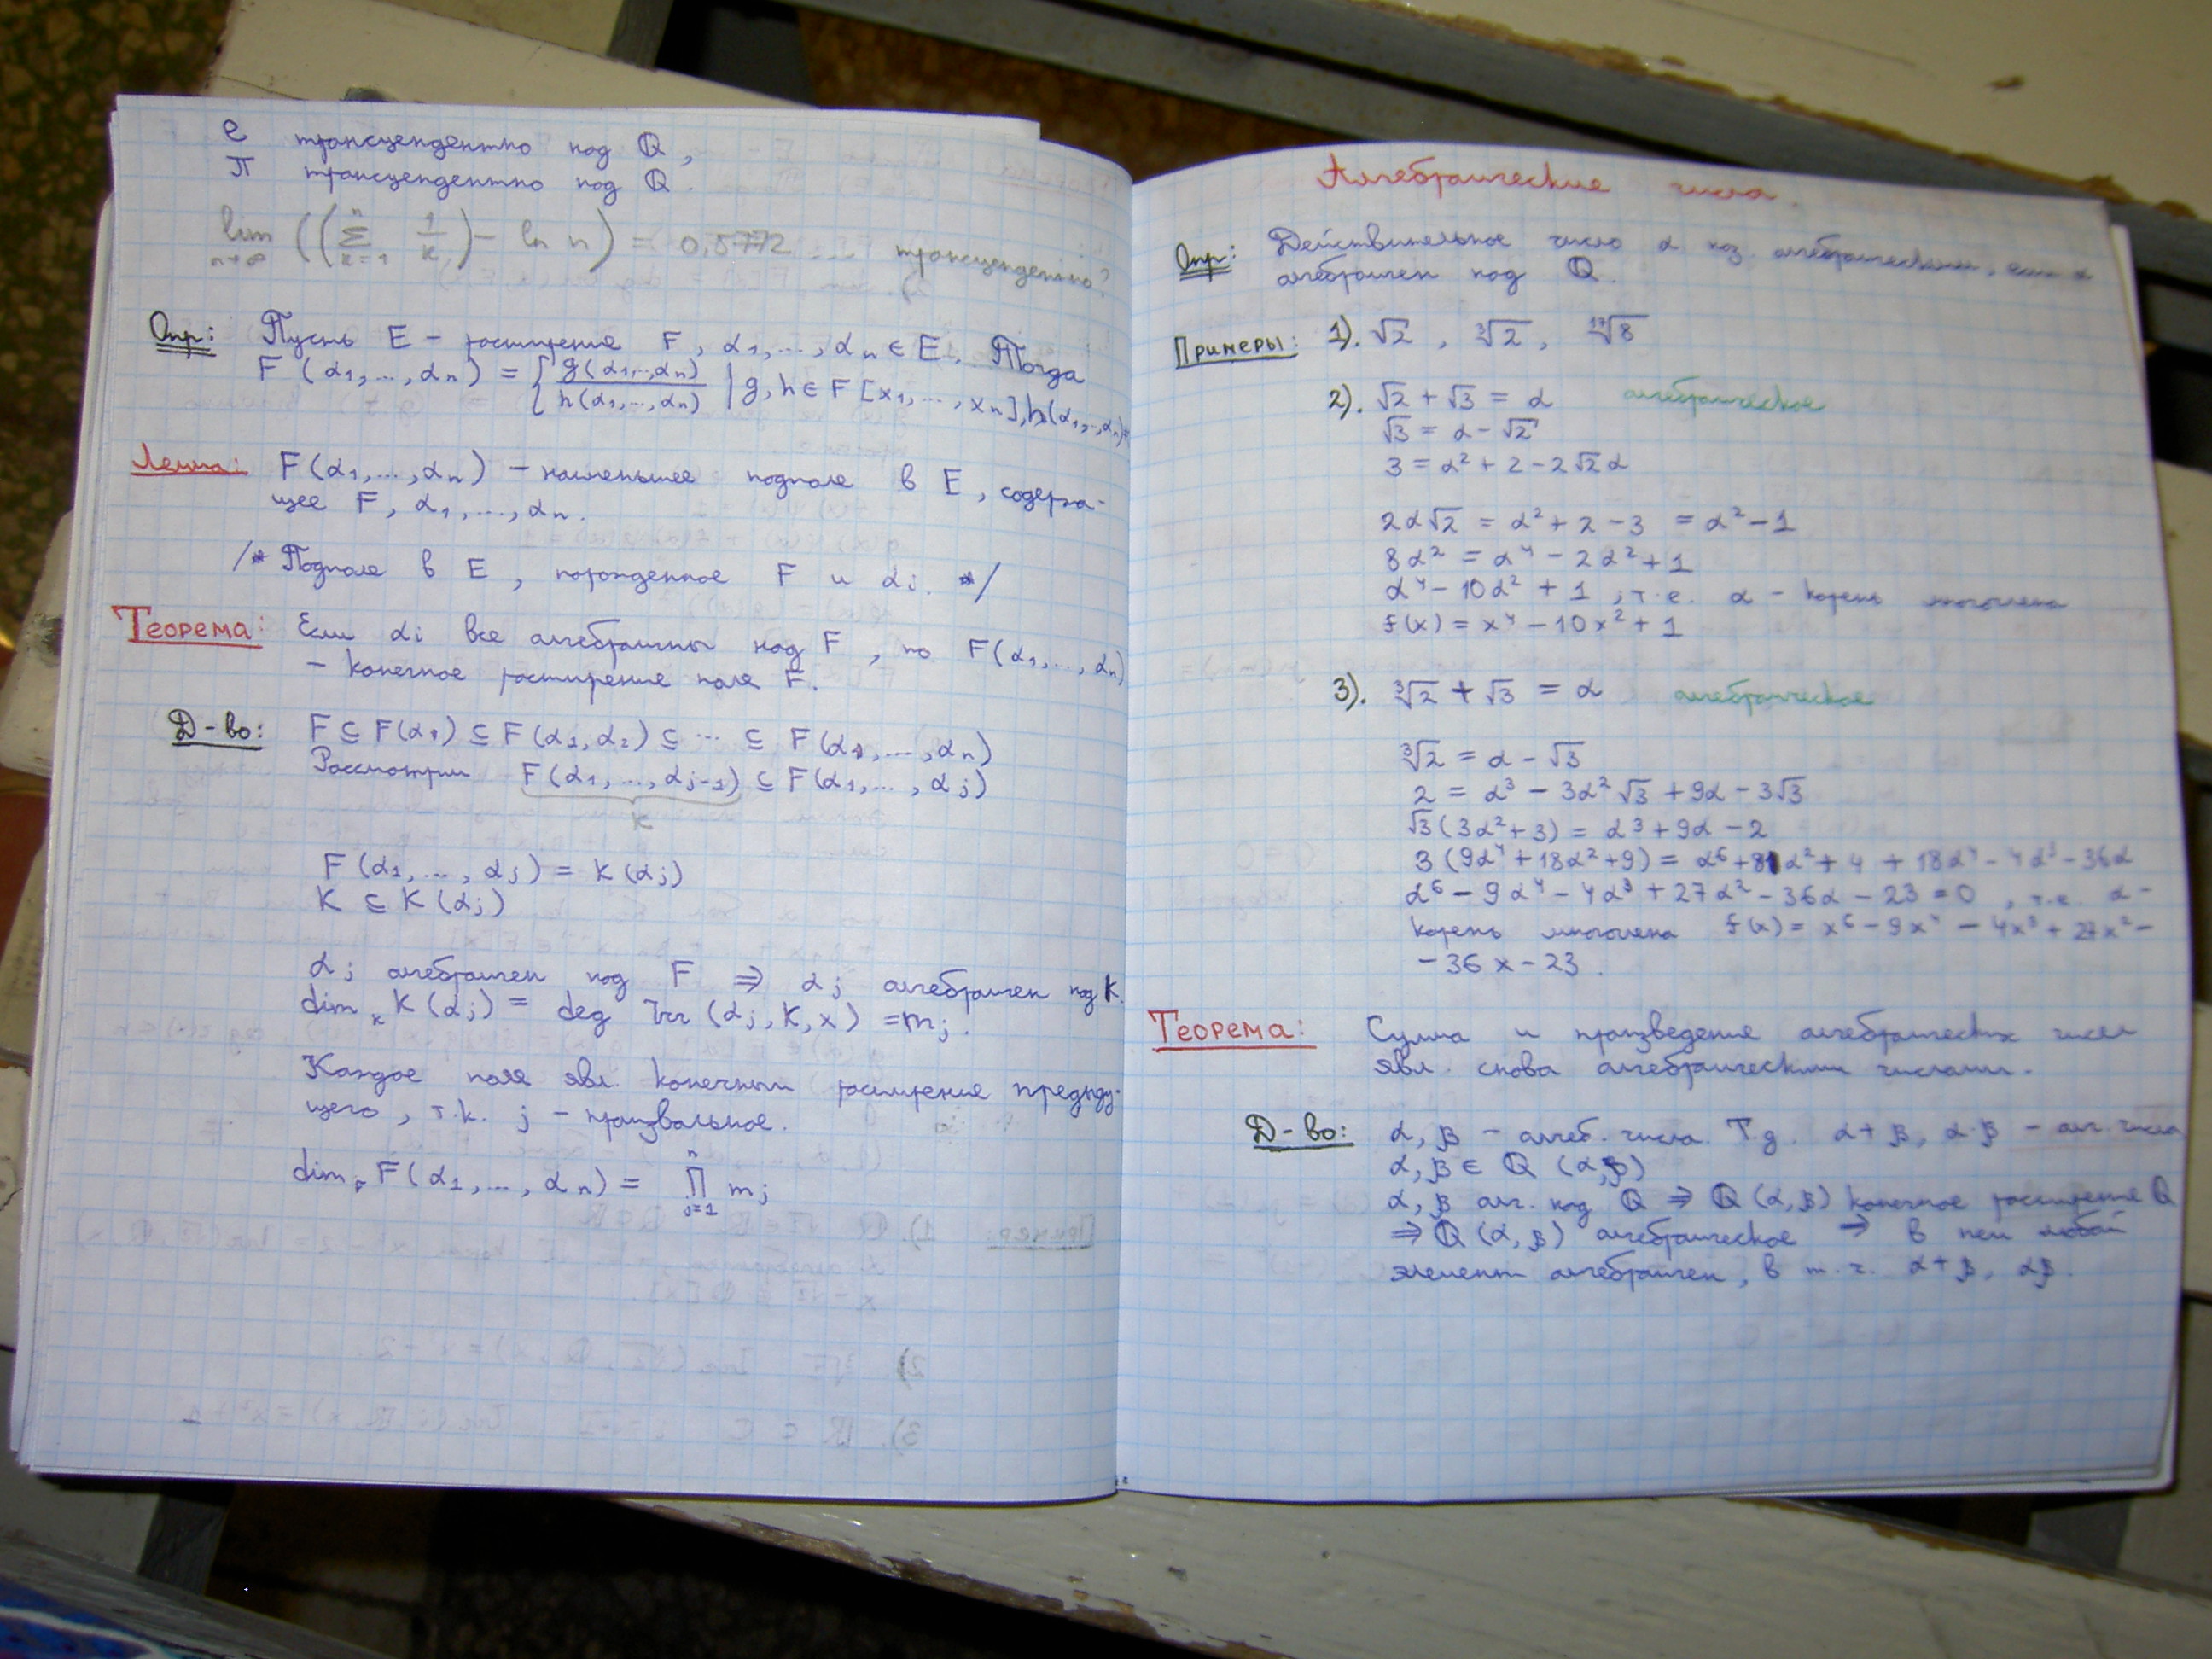 e трансцендентно над ℚ,
π трансцендентно над ℚ.
lim n→∞ ((∑ k=1 n 1/k) − ln n) = 0,5772... трансцендентно?
Опр: Пусть E − расширение F, α₁,...,αₙ ∈ E. Тогда
F(α₁,...,αₙ) = { g(α₁,...,αₙ)/h(α₁,...,αₙ) | g,h ∈ F[x₁,...,xₙ], h(α₁,...,αₙ)≠
Лемма: F(α₁,...,αₙ) − наименьшее подполе в E, содержа-
щее F, α₁,...,αₙ.
/* Подполе в E, порожденное F и αi. */
Теорема: Если αi все алгебраичны над F, то F(α₁,...,αₙ)
− конечное расширение поля F.
Д-во: F ⊆ F(α₁) ⊆ F(α₁,α₂) ⊆ ... ⊆ F(α₁,...,αₙ)
Рассмотрим F(α₁,...,αj-1) ⊆ F(α₁,...,αj)
K
F(α₁,...,αj) = K(αj)
K ⊆ K(αj)
αj алгебраичен над F ⇒ αj алгебраичен над K.
dim_K K(αj) = deg Irr(αj,K,x) = mj.
Каждое поле явл. конечным расширение предыду-
щего, т.к. j − произвольное.
dim_F F(α₁,...,αₙ) = ∏ j=1 n mj
Алгебраические числа.
Опр: Действительное число α наз. алгебраическим, если α
алгебраичен над ℚ.
Примеры: 1). √2, ∛2, ¹⁷√8
2). √2 + √3 = α алгебраическое
√3 = α − √2
3 = α² + 2 − 2√2α
2α√2 = α² + 2 − 3 = α² − 1
8α² = α⁴ − 2α² + 1
α⁴ − 10α² + 1, т.е. α − корень многочлена
f(x) = x⁴ − 10x² + 1
3). ∛2 + √3 = α алгебраическое
∛2 = α − √3
2 = α³ − 3α²√3 + 9α − 3√3
√3(3α²+3) = α³ + 9α − 2
3(9α⁴ + 18α² + 9) = α⁶ + 81α² + 4 + 18α⁴ − 4α³ − 36α
α⁶ − 9α⁴ − 4α³ + 27α² − 36α − 23 = 0, т.е. α −
корень многочлена f(x) = x⁶ − 9x⁴ − 4x³ + 27x² −
− 36x − 23.
Теорема: Сумма и произведение алгебраических чисел
явл. снова алгебраическими числами.
Д-во: α, β − алгеб. числа. Т.д. α+β, α·β − алг. числа
α, β ∈ ℚ(α,β)
α, β алг. над ℚ ⇒ ℚ(α,β) конечное расширение ℚ
⇒ ℚ(α,β) алгебраическое ⇒ в нем любой
элемент алгебраичен, в т.ч. α+β, αβ.